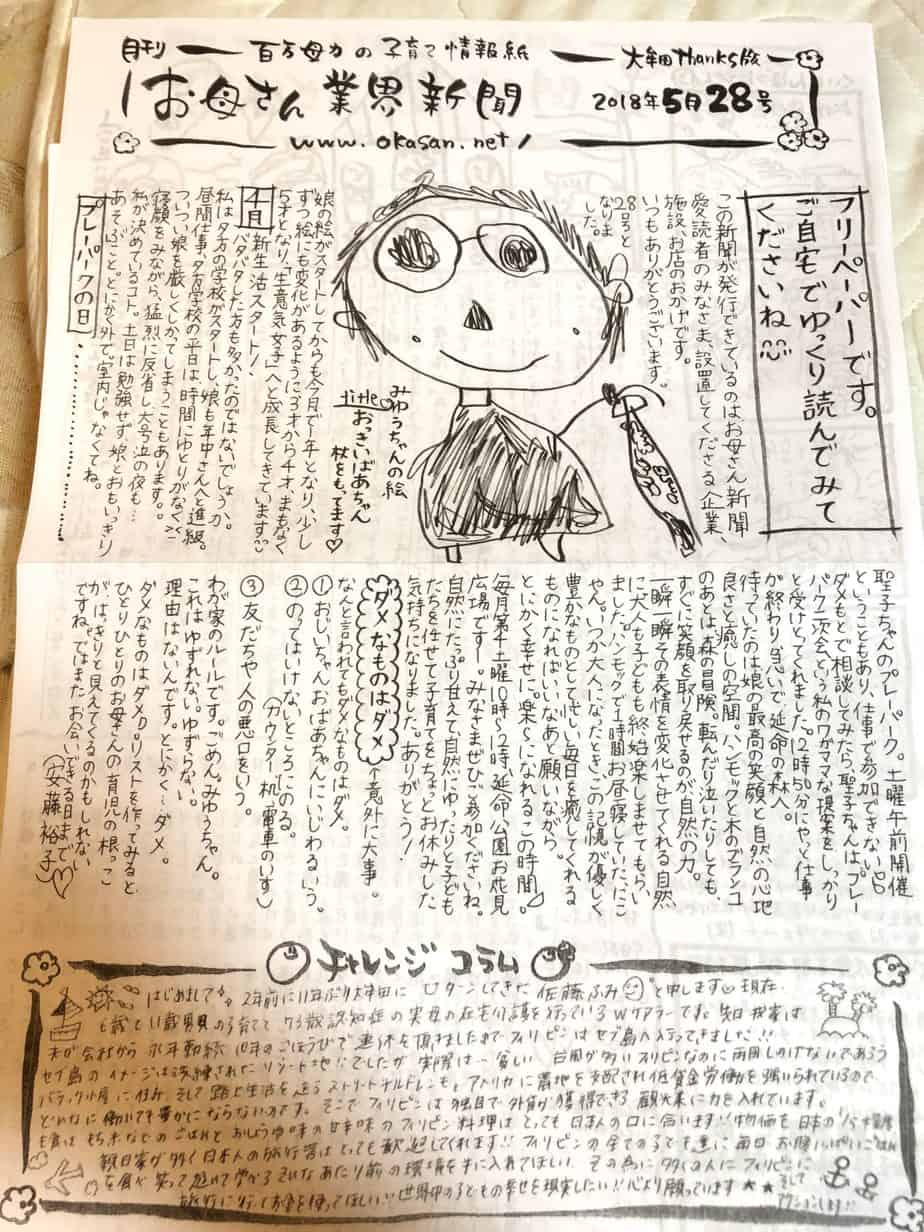 月刊 百万母力の子育て情報紙 大牟田Thanks版
お母さん業界新聞 2018年5月28号
www.okasan.net/
フリーペーパーです。
ご自宅でゆっくり読んでみて
くださいね
この新聞が発行できているのはお母さん新聞
愛読者のみなさま、設置してくださる企業、
施設、お店のおかげです。
いつもありがとうございます。
28号と
なりま
した。
みゆうちゃんの絵
title
おっきいばあちゃん
杖をもってます♡
娘の絵がスタートしてからも今月で1年となり、少し
ずつ絵にも変化があるように3才から4才、まもなく
5才となり、「生意気女子」へと成長してきています
4月 新生活スタート!
バタバタした方も多かったのではないでしょうか。
私は夕方の学校がスタートし、娘も年中さんへと進級。
昼間仕事、夕方学校の平日は、時間にゆとりがなく
ついつい娘を厳しくしかってしまうこともあります。
寝顔をみながら、猛烈に反省し大号泣の夜も…
私が決めているコト。土日は勉強せず、娘とおもいっきり
あそぶこと。とにかく外で。室内じゃなくてね。
プレーパークの日
聖子ちゃんのプレーパーク。土曜午前開催
ということもあり、仕事で参加できない
ダメもとで相談してみたら、聖子ちゃんは、プレー
パーク二次会という私のワガママな提案をしっかり
と受けとってくれました。12時50分にやっと仕事
が終わり、急いで延命の森へ。
待っていたのは娘の最高の笑顔と自然の心地
良さと癒しの空間。ハンモックと木のブランコ
のあとは、森の冒険。転んだり泣いたりしても、
すぐに笑顔を取り戻せるのが自然の力。
一瞬一瞬その表情を変化させてくれる自然
に大人も子どもも終始楽しませてもらい
ました。ハンモックで1時間お昼寝していたにこ
ちゃん。いつか大人になったとき、この記憶が優しく
豊かなものとして忙しい毎日を癒してくれる
ものになればいいなあと願いながら。
とにかく幸せに。楽〜になれるこの時間。
毎月第4土曜10時〜12時、延命公園お花見
広場です〜。みなさまぜひご参加くださいね。
自然にたっぷり甘えて、自然にゆったりと子ども
たちを任せて子育てをちょっとお休みした
気持ちになりました。ありがとう!
ダメなものはダメ ←意外に大事。
なんと言われてもダメなものはダメ。
①おじいちゃんおばあちゃんにいじわるいう。
②のってはいけないところにのる。
(カウンター、机、電車のいす)
③友だちや人の悪口をいう。
わが家のルールです。ごめん。みゆうちゃん。
これはゆずれない。ゆずらない。
理由はないんです。とにかく…ダメ。
ダメなものはダメ。リストを作ってみると
ひとりひとりのお母さんの育児の根っこ
が、はっきりと見えてくるのかもしれない
ですね。ではまたお会いできる日まで
(安藤裕子)♡
チャレンジ コラム
はじめまして 2年前に11年ぶり大牟田に Uターンしてきた 佐藤ふみ と申します 現在
6歳と11歳男児の子育てと 73歳認知症の実母の在宅介護を行っているWケアラーです。先日 我家は
夫が会社から 永年勤続 10年のごほうびで 連休を頂きましたので フィリピンは セブ島へ 行ってきました!!
セブ島の イメージは 洗練された リゾート地!!でしたが 実際は… 貧しい 台風が多いフィリピンなのに 雨風しのげないであろう
バラック小屋に住み、そして 路上生活を送る ストリートチルドレンも。アメリカに 農地を支配され 低賃金労働を 強いられているので
どれだけ働いても豊かにならないのです。そこで フィリピンは 独自で 外貨が獲得できる 観光業に力を入れています。
もち米などの ごはんと おしょうゆ味の 甘辛味の フィリピン料理は とっても 日本人の口に合います!! 物価も 日本の
親日家が多く 日本人の旅行客は とっても 歓迎してくれます!! フィリピンの 全ての子ども達に 毎日 お腹いっぱい ごはん
を食べ 笑って 遊んで 学べる そんな あたり前の 環境を手に入れてほしい その為に 多くの人に フィリピンに
旅行に行って お金を使ってほしい!! 世界中の子どもの幸せを 現実したい!! 心より願っています ★ ★
そして